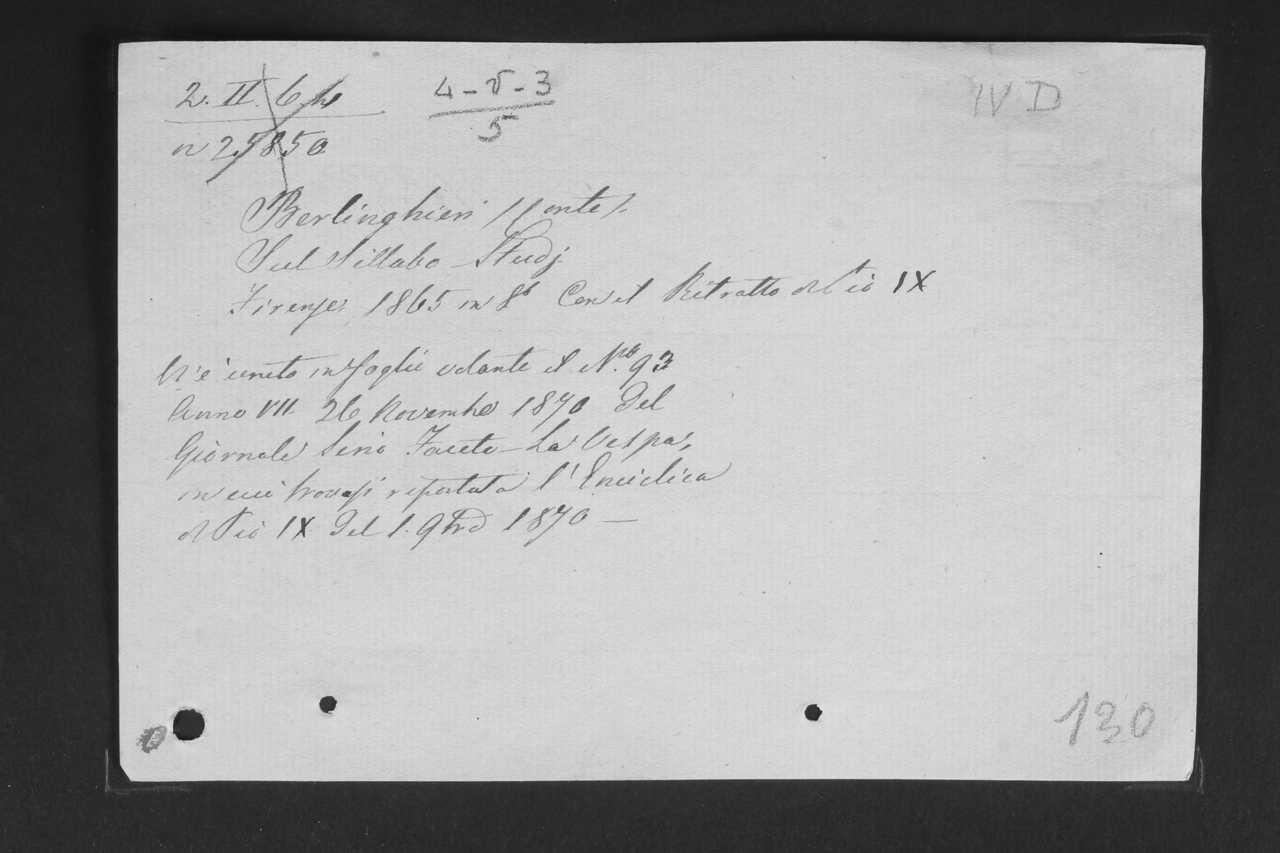 2. II. 6
4 - V - 3
5
IV D
n 25850
Berlinghieri
Sul Sillabo - Studj
Firenze 1865 in 8° Con il Ritratto di Pio IX
V'è unito in foglie volante il N.ro 93
Anno VII. 26 Novembre 1870 Del
Giornale Serio Faceto - La Vespa,
in cui trovasi riportata l'Enciclica
di Pio IX Del 1. 9bre 1870 —
130